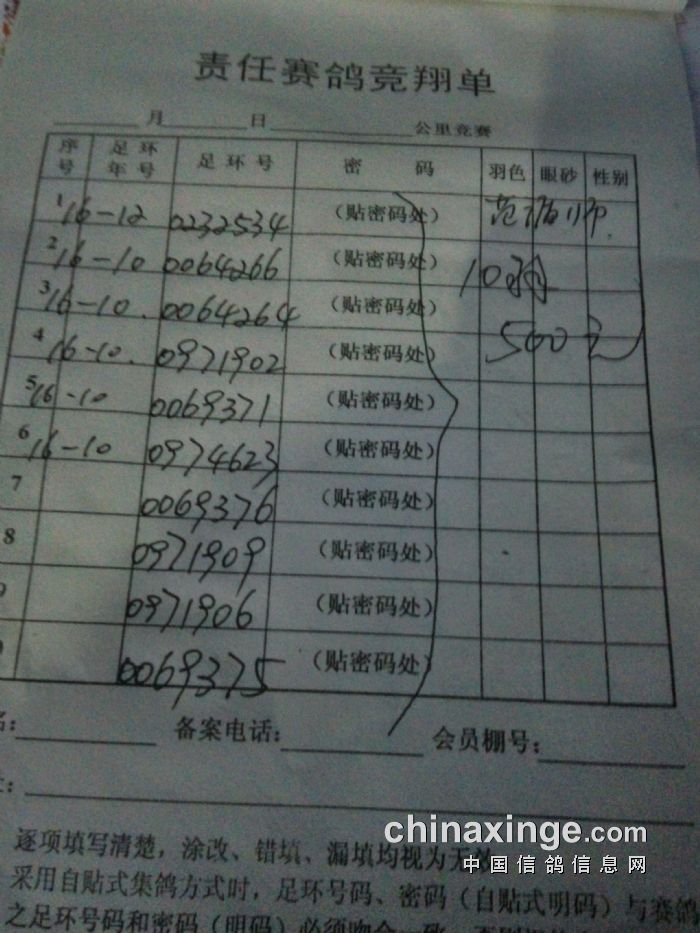 责任赛鸽竞翔单
月 日 公里竞赛
序号 足环年号 足环号 密 码 羽色 眼砂 性别
1 16-12 0232534 (贴密码处) 范
2 16-10 0064266 (贴密码处) 10羽
3 16-10. 0064264 (贴密码处) 500元
4 16-10. 0971902 (贴密码处)
5 16-10 0069371 (贴密码处)
6 16-10 0974623 (贴密码处)
7 0069376 (贴密码处)
8 0971909 (贴密码处)
0971906 (贴密码处)
0069375 (贴密码处)
名: 备案电话: 会员棚号:
逐项填写清楚，涂改、错填、漏填均视为无效
采用自贴式集鸽方式时，足环号码、密码（自贴式明码）与赛鸽
之足环号码和密码（明码）必须吻合一致
chinaxinge.com
中国信鸽信息网